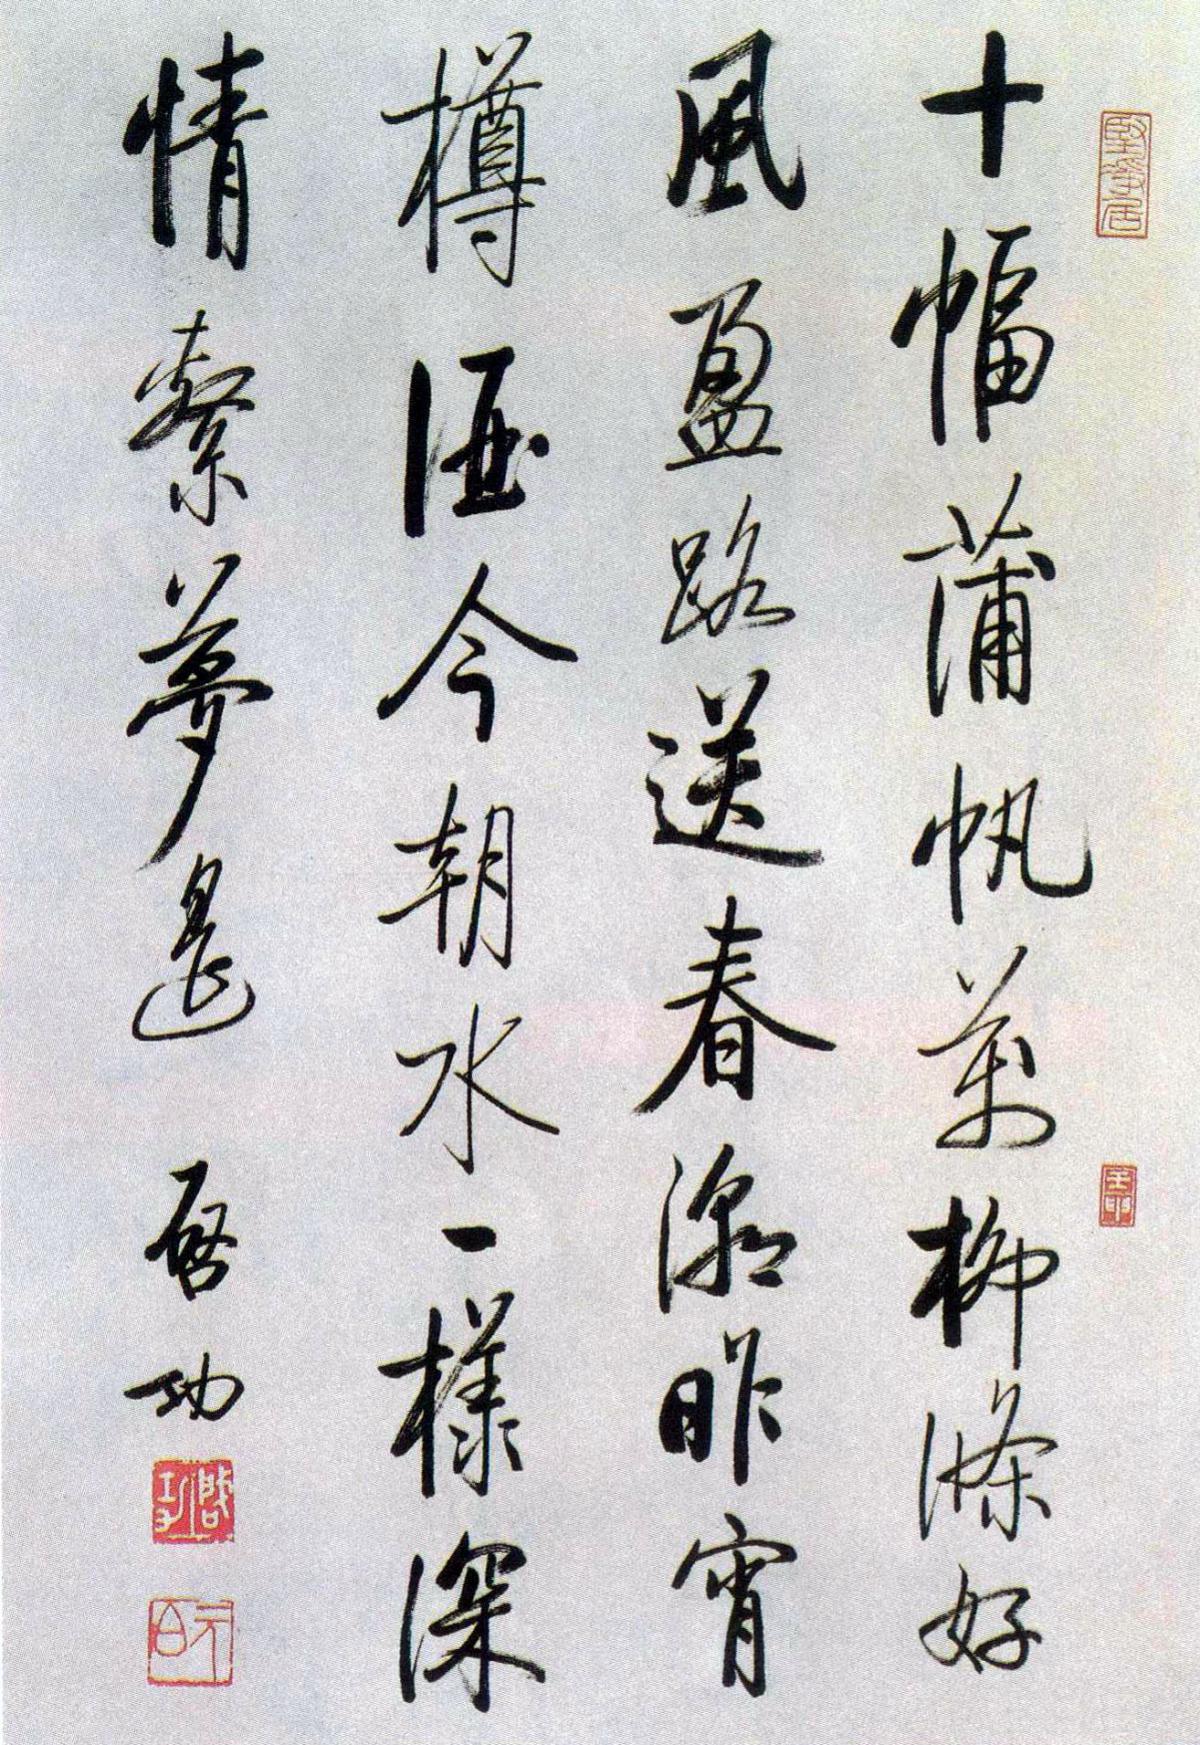 十幅蒲帆萬柳條好
風盈路送春潮昨宵
樽酒今朝水一樣深
情繫夢遙
啓功
啟功
元白